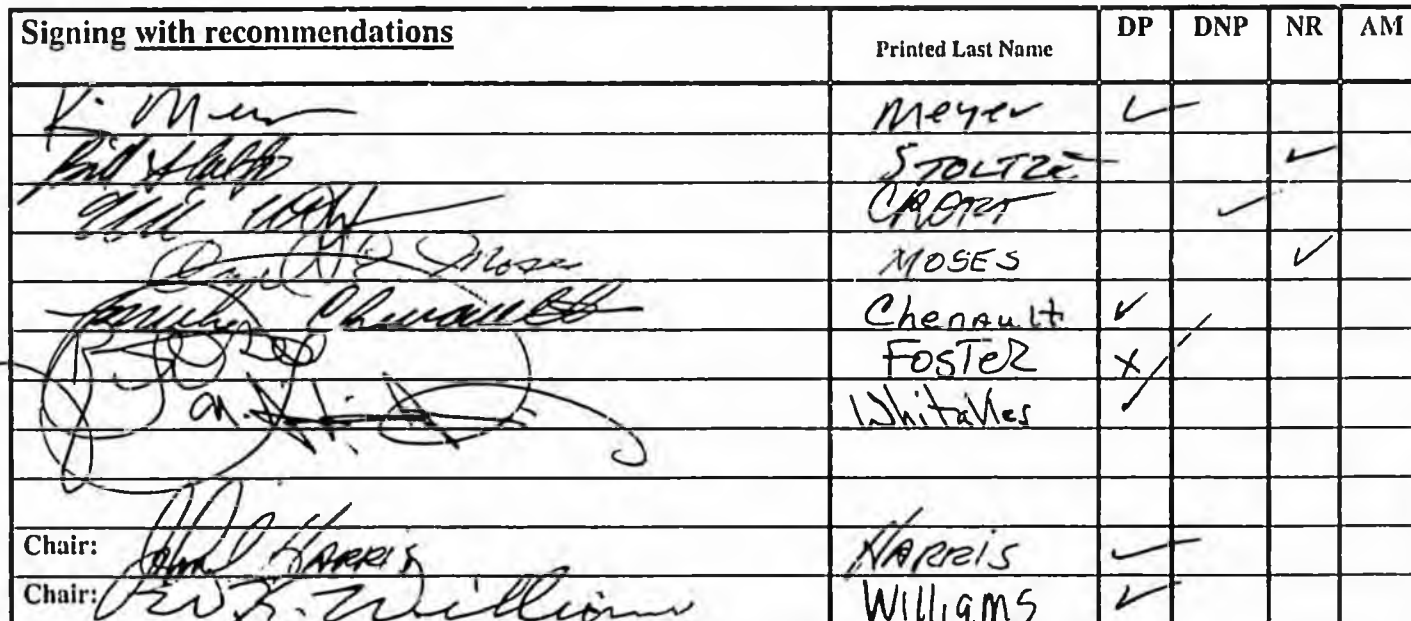 Signing with recommendations Printed Last Name DP DNP NR AM
K. Meyer Meyer ✓
Bill Stoltze STOLTZE ✓
CROFT ✓
Moses MOSES ✓
Chenault Chenault ✓
FOSTER X
Whitaker ✓
Chair: John L HARRIS HARRIS ✓
Chair: W K. Williams WILLIAMS ✓